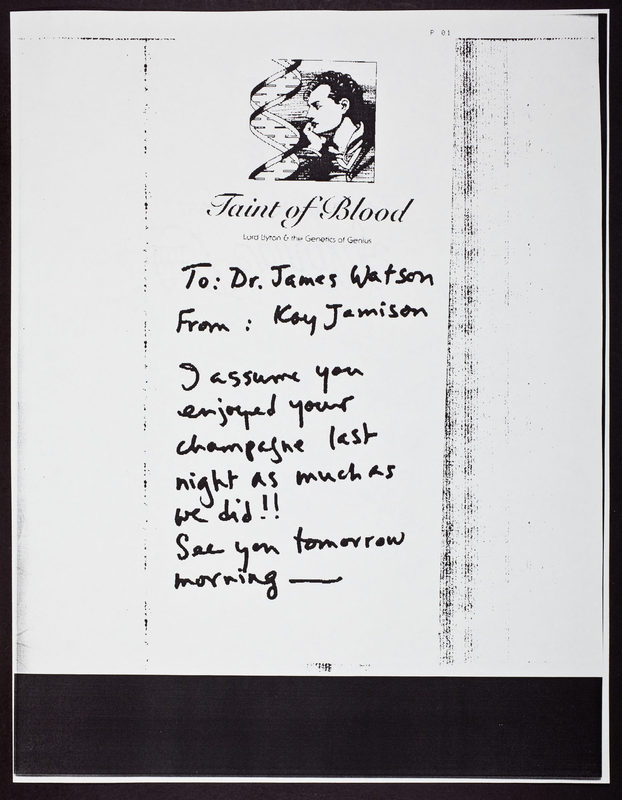 P 01
Taint of Blood
Lord Byron & the Genetics of Genius
To: Dr. James Watson
From: Kay Jamison
I assume you
enjoyed your
champagne last
night as much as
we did!!
See you tomorrow
morning —